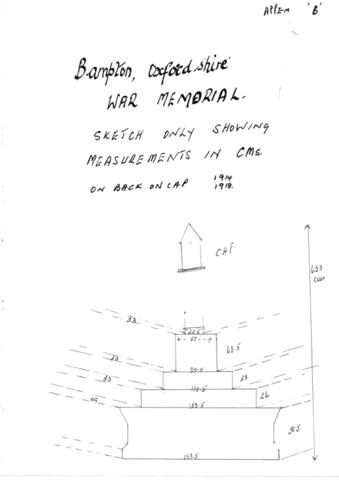 APPEN 'B'
Bampton, Oxfordshire
WAR MEMORIAL.
SKETCH ONLY SHOWING
MEASUREMENTS IN CMS.
ON BACK ON CAP 1914
1918.
CAP.
633
33
57
63.5
23
93.5
23
43
110.5
26
69
153.5
153.5